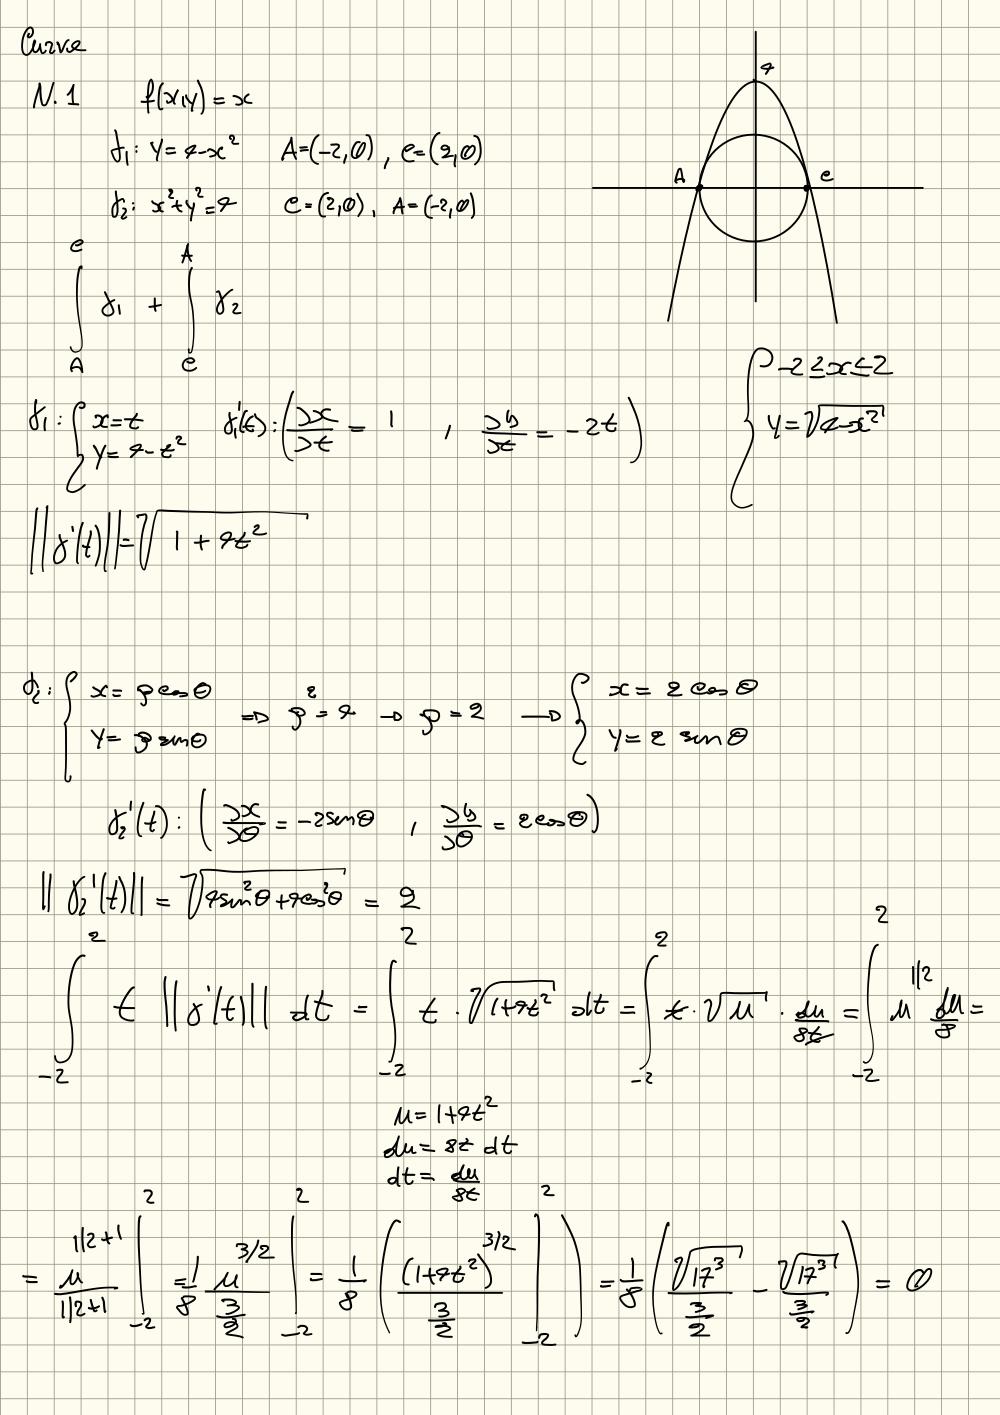 Curve
N. 1 f(x,y) = x
γ₁: y = 4-x² A=(-2,0), C=(2,0)
γ₂: x²+y²=4 C=(2,0), A=(-2,0)
4
A C
∫_A^C γ₁ + ∫_C^A γ₂
{ -2 ≤ x ≤ 2
y = √(4-x²)
γ₁: { x=t
y = 4-t²
γ₁'(t): (∂x/∂t = 1 , ∂y/∂t = -2t)
||γ'(t)|| = √(1+4t²)
γ₂: { x = ρ cos θ
y = ρ sin θ
⇒ ρ² = 4 → ρ = 2 → { x = 2 cos θ
y = 2 sin θ
γ₂'(t): (∂x/∂θ = -2 sin θ , ∂y/∂θ = 2 cos θ)
||γ₂'(t)|| = √(4sin²θ+4cos²θ) = 2
∫_{-2}^{2} t ||γ'(t)|| dt = ∫_{-2}^{2} t · √(1+4t²) dt = ∫_{-2}^{2} t · √u · du/8t = ∫_{-2}^{2} u^{1/2} du/8 =
u = 1+4t²
du = 8t dt
dt = du/8t
= u^{1/2+1}/(1/2+1) |_{-2}^{2} = 1/8 u^{3/2}/(3/2) |_{-2}^{2} = 1/8 ( (1+4t²)^{3/2}/(3/2) |_{-2}^{2} ) = 1/8 ( √17³/(3/2) - √17³/(3/2) ) = 0